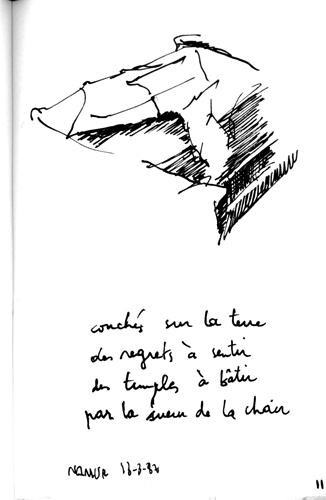 couchés sur la terre
des regrets à sentir
des temples à bâtir
par la sueur de la chair
NAMUR
11